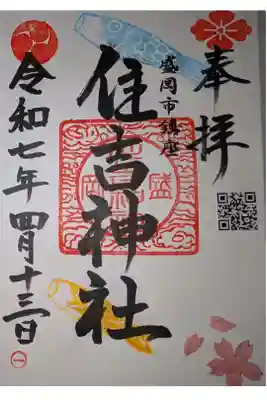 奉拝
盛岡市鎮座
住吉神社
令和七年四月十三日